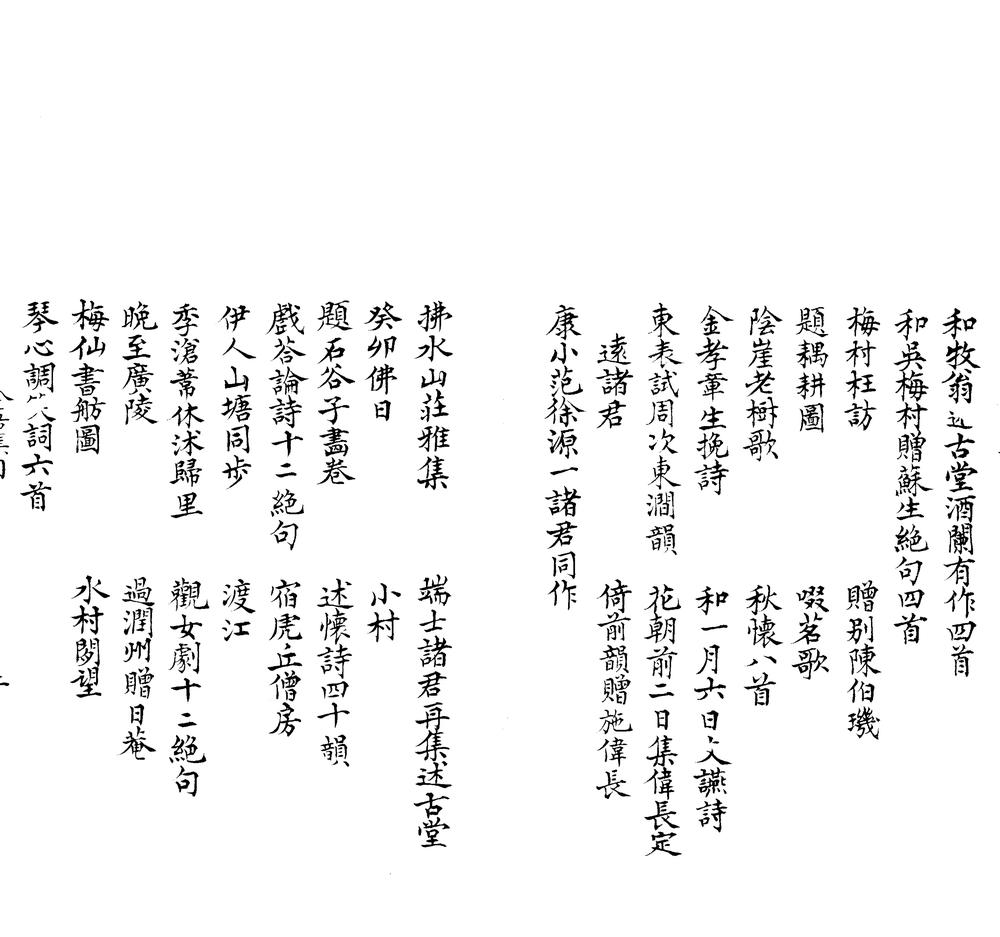 和牧翁述古堂酒闌有作四首
和吳梅村贈蘇生絕句四首
梅村枉訪　贈别陳伯璣
題耦耕圖　啜茗歌
陰崖老樹歌　秋懷八首
金孝章生挽詩　和一月六日文讌詩
東表試周次東澗韻　花朝前二日集偉長定
遠諸君　倚前韻贈施偉長
康小范徐源一諸君同作
拂水山莊雅集　端士諸君再集述古堂
癸卯佛日　小村
題石谷子畵卷　述懷詩四十韻
戲荅論詩十二絕句　宿虎丘僧房
伊人山塘同步　渡江
季滄葦休沭歸里　觀女劇十二絕句
晚至廣陵　過潤州贈日菴
梅仙書舫圖　水村閟望
琴心調笑詞六首